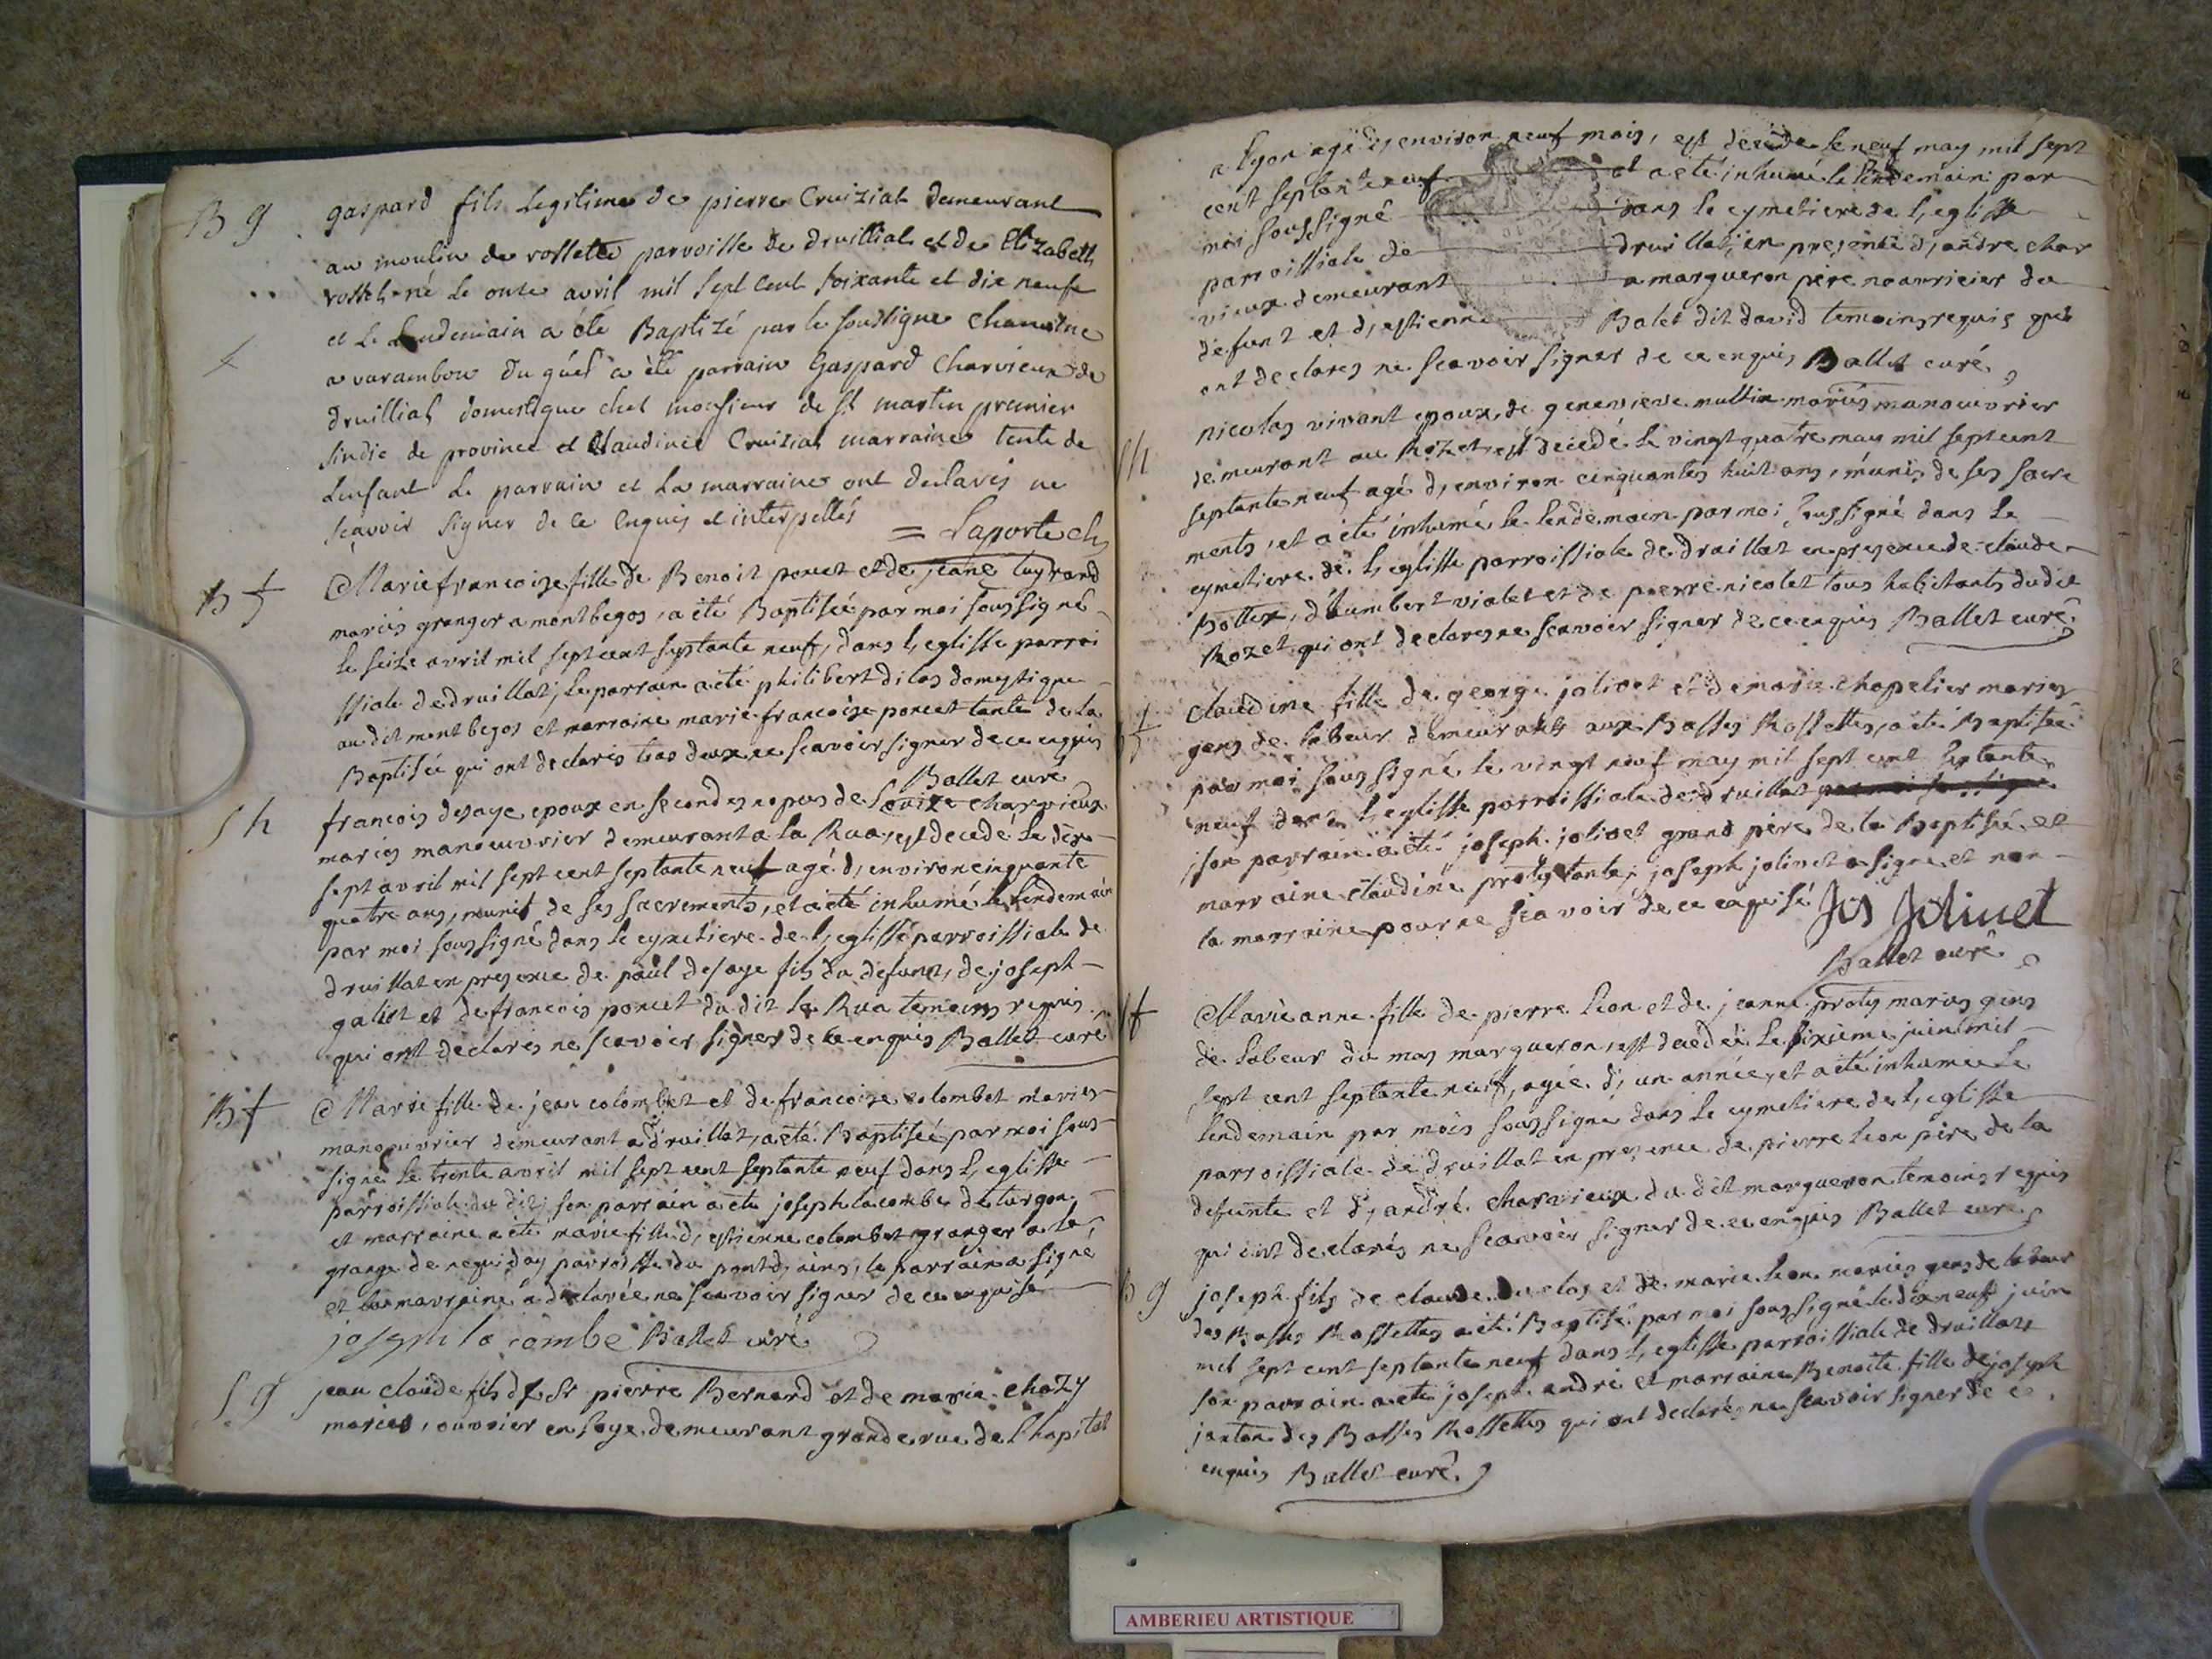 B g gaspard fils legitime de pierre Cruiziat demeurant
au moulin de rossette parroisse de druilliat et de Elizabeth
rosset né le onze avril mil sept cent soixante et dix neufe
et le lendemain a été Baptizé par le soussigne chanoine
a varambon du quel a été parrain Gaspard Charvieux de
druilliat domestique chet monsieur de st martin premier
sindic de province et Claudine Cruiziat marraine tente de
lenfant le parrain et la marraine ont declarés ne
scavoir signer de ce enquis et interpellés = Laporte ch
B f Marie francoise fille de Benoit poncet et de jeane
mariés granger a montbegos, a été Baptisée par moi soussigné
le seize avril mil sept cent septante neuf, dans l, eglisse parroi
ssiale de druillat, le parrain a été philibert dilas domestique
au dit montbegos et marraine marie francoise poncet tante de la
Baptisée qui ont declarés tous deux ne scavoir signer de ce enquis
Ballet curé
S h francois desaye epoux en secondes nopces de Louise charvieux
mariés manoeuvrier demeurant a la Rua, est decedé le dix
sept avril mil sept cent septante neuf agé d, environ cinquante
quatre ans, munit de ses sacrements, et a été inhumé le lendemain
par moi soussigné dans le cymetiere de l, eglisse parroissiale de
druillat en presence de paul desaye fils du defunt, de joseph
galiet et de francois poncet du dit la Rua temoins requis
qui ont declarés ne scavoir signer de ce enquis Ballet curé
B f Marie fille de jean colombet et de francoise colombet mariés
manouvrier demeurant a druillat, a été Baptisée par moi sous
signé le trente avril mil sept cent septante neuf dans l, eglisse
parroissiale du dit, son parrain a été joseph lacombe de turgon
et marraine a été marie fille d, estienne colombet granger a la
grange de parroisse du pont d, ains, le parrain a signé
et la marraine a declarée ne scavoir signer de ce enquise
joseph la combe Ballet curé
S g jean claude fils de Sr pierre Bernard et de marie chazy
mariés, ouvrier en soye demeurant grande rue de l'hopital
a lyon agé d, environ neuf mois, est decede le neuf may mil sept
cent septante neuf et a été inhumé le lendemain par
moi soussigné dans le cymetiere de l, eglisse
parroissiale de druillat, en presence d, andre char
vieux demeurant a margueron père nourricier du
defunt et d, estienne Balet dit david temoins requis qui
ont declares ne scavoir signer de ce enquis Ballet curé
S h nicolas vivant epoux de genevieve mariés manouvrier
demeurant au Rozet, est decedé le vingt quatre may mil sept cent
septante neuf agé d, environ cinquantes huit ans, munis de ses sacre
ments, et a été inhumé le lendemain par moi soussigné dans le
cymetiere de l, eglisse parroissiale de druillat en presence de claude
Bottex, d'humbert violet et de pierre nicolet tous habitants du dit
Rozet qui ont declares ne scavoir signer de ce enquis Ballet curé
B f claudine fille de george jolivet et de marie chapelier mariés
gens de labeur demeurants aux Basses Rossettes, a été Baptisée
par moi soussigné le vingt neuf may mil sept cent septante
neuf dans l, eglisse parroissiale de druillat par moi soussigné
son parrain a été joseph jolivet grand père de la Baptisée et
marraine claudine joseph jolivet a signe et non
la marraine pour ne scavoir de ce enquisé Jos Jolivet
Ballet curé
S f Marie anne fille de pierre leon et de jeanne mariés gens
de labeur du mas margueron, est decedée le sixieme juin mil
sept cent septante neuf, agée d, un année, et a été inhumée le
lendemain par mois soussigne dans le cymetiere de l, eglisse
parroissiale de druillat en presence de pierre leon père de la
defunte et d, andré charvieux du dit margueron temoins requis
qui ont declarés ne scavoir signer de ce enquis Ballet curé
B g joseph fils de claude duclos et de marie leon mariés gens de labeur
des Basses Rossettes a été Baptisé par moi soussigné le dix neuf juin
mil sept cent septante neuf dans l, eglisse parroissiale de druillat
son parrain a été joseph andré et marraine Benoite fille de joseph
janton des Basses Rossettes qui ont declarés ne scavoir signer de ce
enquis Ballet curé
AMBERIEU ARTISTIQUE